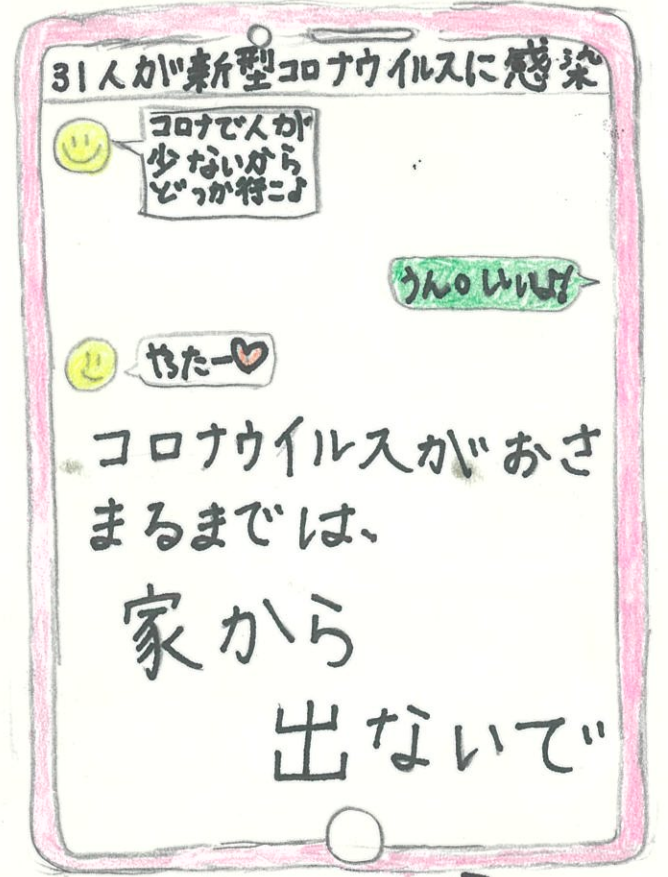 31人が新型コロナウイルスに感染
コロナで人が
少ないから
どっか行こ♪
うん。いいよ!
やったー♡
コロナウイルスがおさ
まるまでは、
家から
出ないで